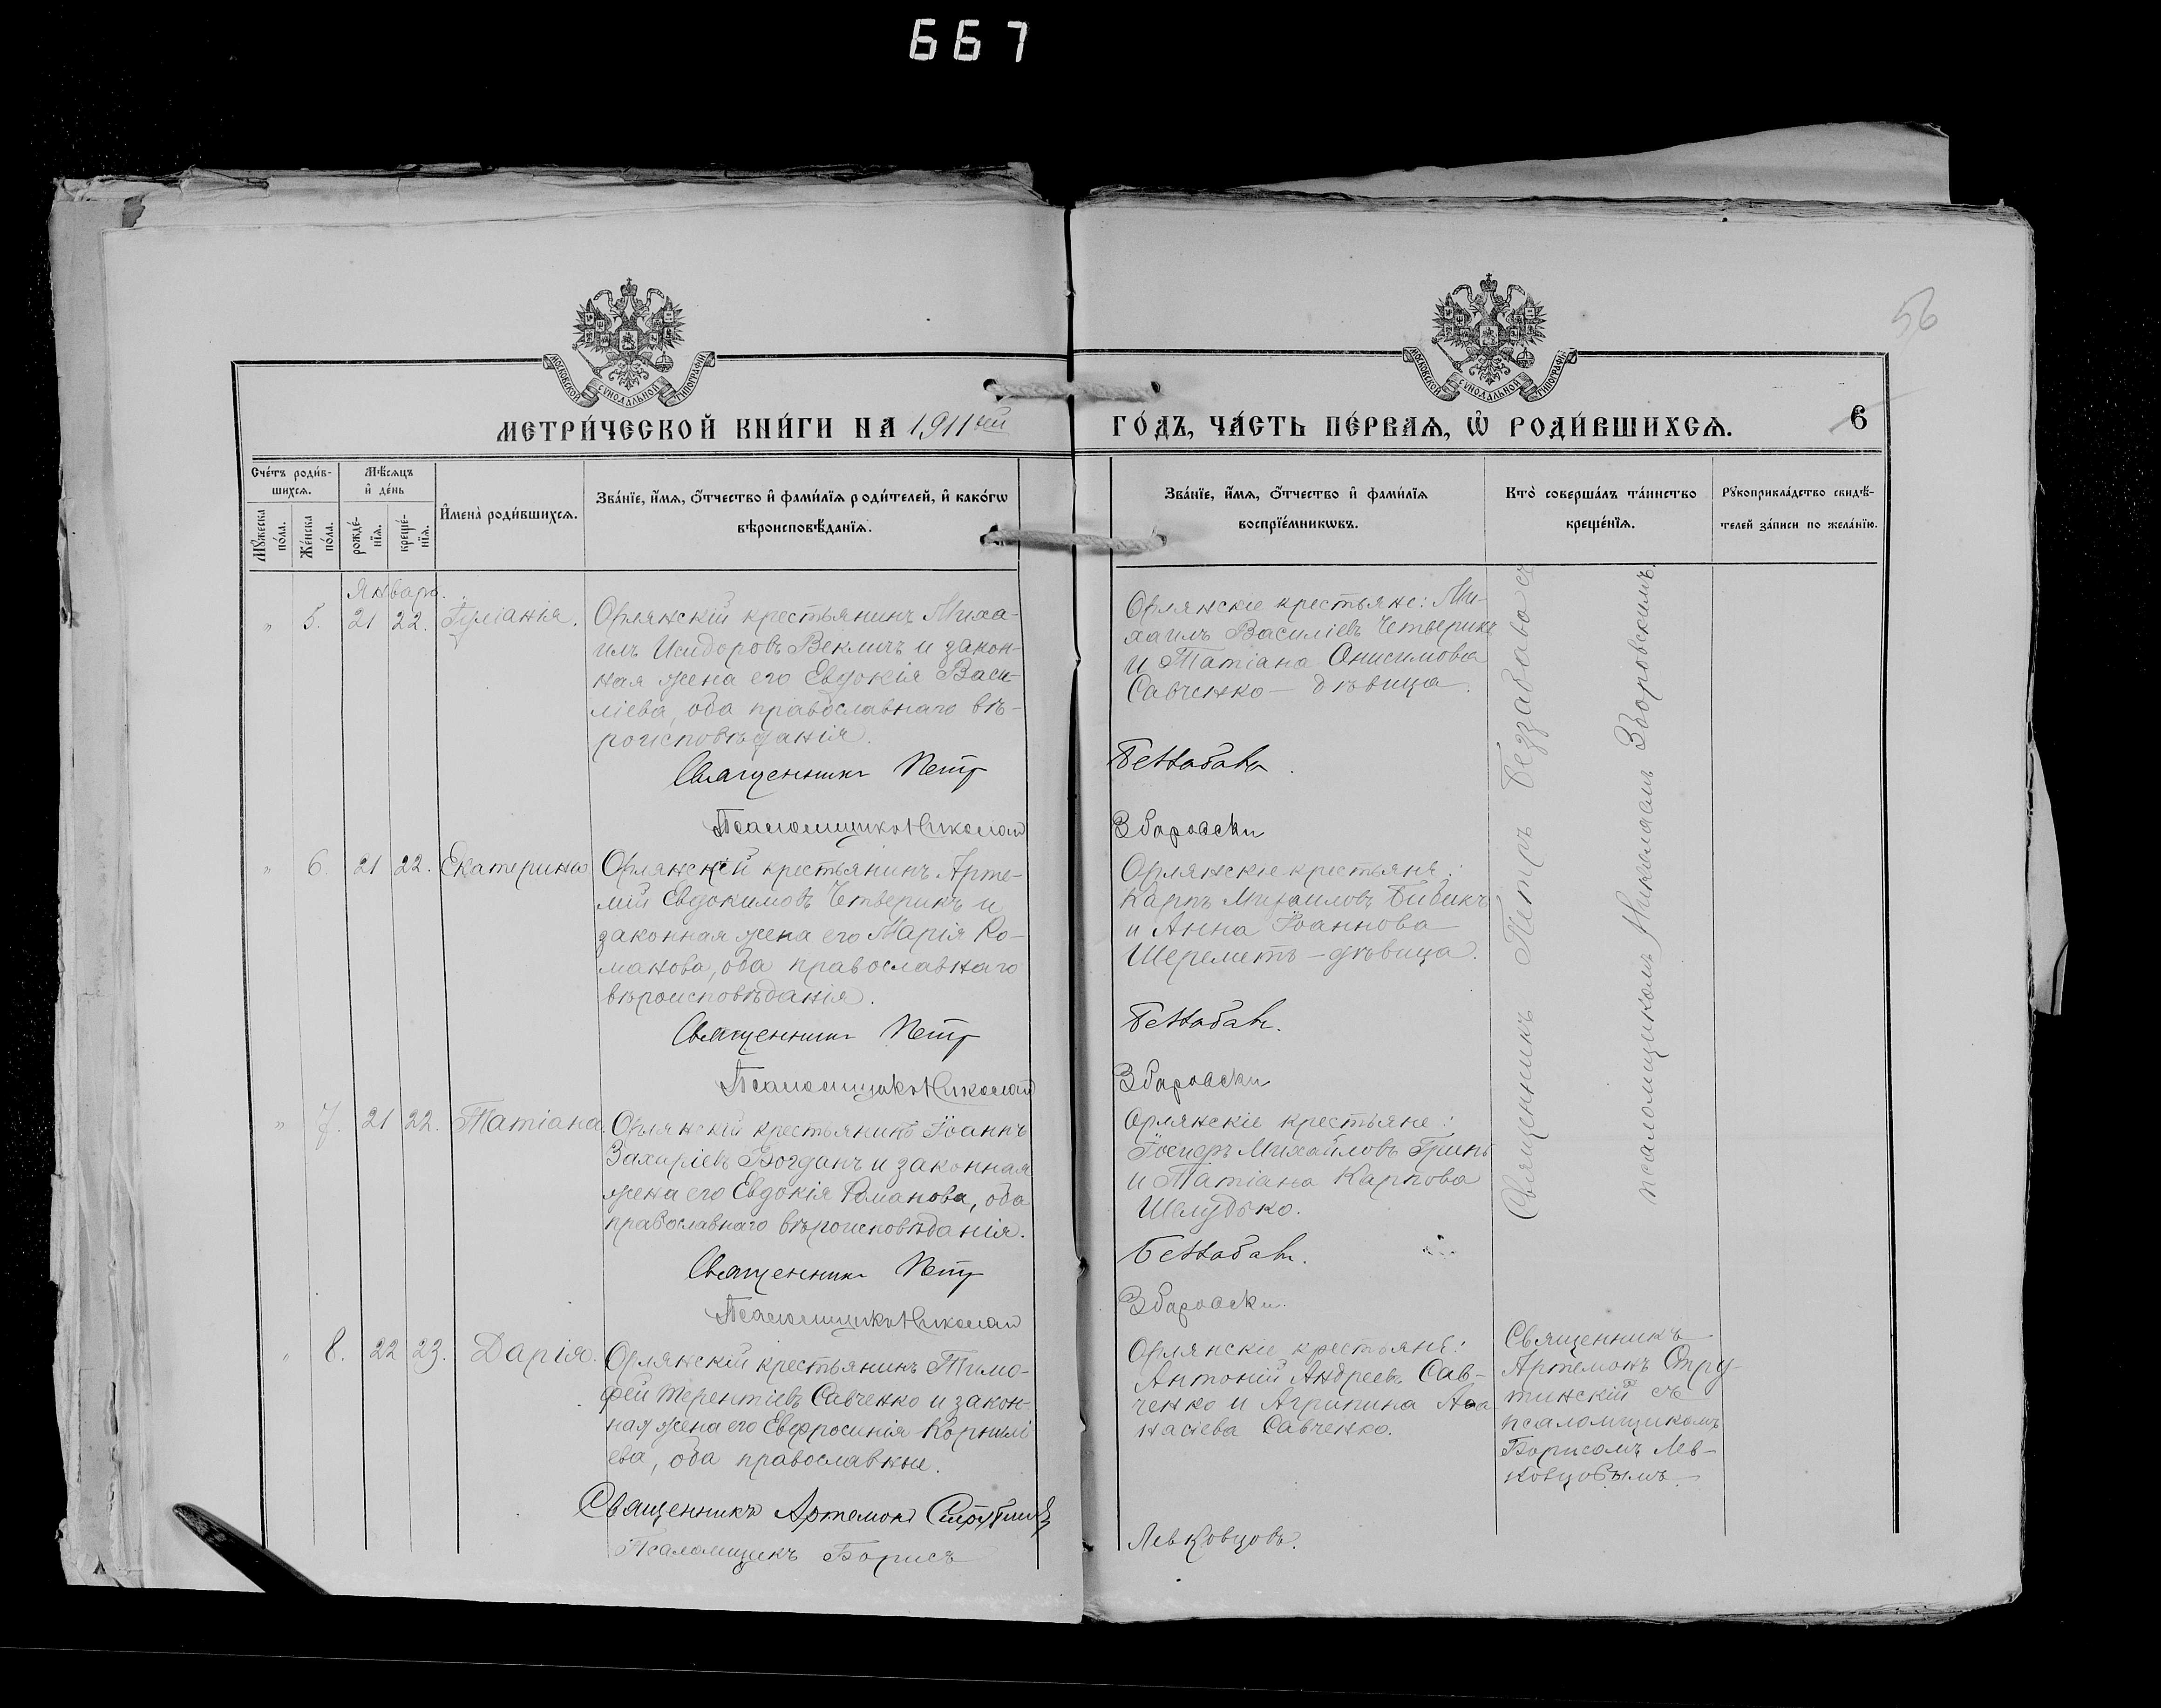 667
56
МОСКОВСКОЙ СѴНОДАЛЬНОЙ ТИПОГРАФІИ
МОСКОВСКОЙ СѴНОДАЛЬНОЙ ТИПОГРАФІИ
МЕТРИ́ЧЕСКОЙ КНИ́ГИ НА 1911ый
ГО́ДЪ, ЧА́СТЬ ПЕ́РВАѦ, Ѡ҆ РОДИ́ВШИХСѦ.
6
Сче́тъ роди́в-
шихсѧ.
Мѣ́сѧцъ
и҆ де́нь
Мꙋ́жеска
по́ла.
Же́нска
по́ла.
рожде́-
нїѧ.
креще́-
нїѧ.
И҆мена̀ роди́вшихсѧ.
Зва́нїе, и҆́мѧ, ѻ҆́тчество и҆ фами́лїѧ роди́телей, и҆ како́гѡ
вѣроисповѣ́данїѧ.
Зва́нїе, и҆́мѧ, ѻ҆́тчество и҆ фами́лїѧ
воспрїе́мникѡвъ.
Кто̀ соверша́лъ та́инство
креще́нїѧ.
Рꙋкоприкла́дство свидѣ́-
телей за́писи по жела́нїю.
Январь.
" 5. 21 22. Іуліанія.
Орлянскій крестьянинъ Миха-
илъ Исидоровъ Веклич и закон-
ная жена его Евдокія Васи-
ліева, оба православнаго вѣ-
роисповѣданія.
Священникъ Петр
Псаломщикъ Николай
Орлянскіе крестьяне: Ми-
хаилъ Василіевъ Четверикъ
и Татіана Онисимова
Савченко – дѣвица.
Збаровски
Священникъ Петръ
псаломщикомъ Николаемъ Зборовскимъ.
" 6. 21 22. Екатерина
Орлянскій крестьянинъ Арте-
мій Евдокимовъ Четверикъ и
законная жена его Марія Ро-
манова, оба православнаго
вѣроисповѣданія.
Священникъ Петр
Псаломщикъ Николай
Орлянскіе крестьяне:
Карпъ Михаиловъ Бибикъ
и Анна Іоаннова
Шереметъ – дѣвица.
Збаровски
" 7. 21 22. Татіана.
Орлянскій крестьянинъ Іоаннъ
Захаріевъ Богданъ и законная
жена его Евдокія Романова, оба
православнаго вѣроисповѣданія.
Священникъ Петр
Псаломщикъ Николай
Орлянскіе крестьяне:
Іосифъ Михайловъ Гринь
и Татіана Карпова
Шелудько.
Збаровски.
" 8. 22 23. Дарія.
Орлянскій крестьянинъ Тимо-
фей Терентіевъ Савченко и закон-
ная жена его Евфросинія Корнилі
ева, оба православные.
Священникъ Артемонъ
Псаломщикъ Борисъ
Орлянскіе крестьяне:
Антоній Андреевъ Сав-
ченко и Агрипина Аѳа
насіева Савченко.
Левковцовъ.
Священникъ
Артемонъ Стру-
тинскій съ
псаломщикомъ
Борисомъ Лев-
ковцовымъ.